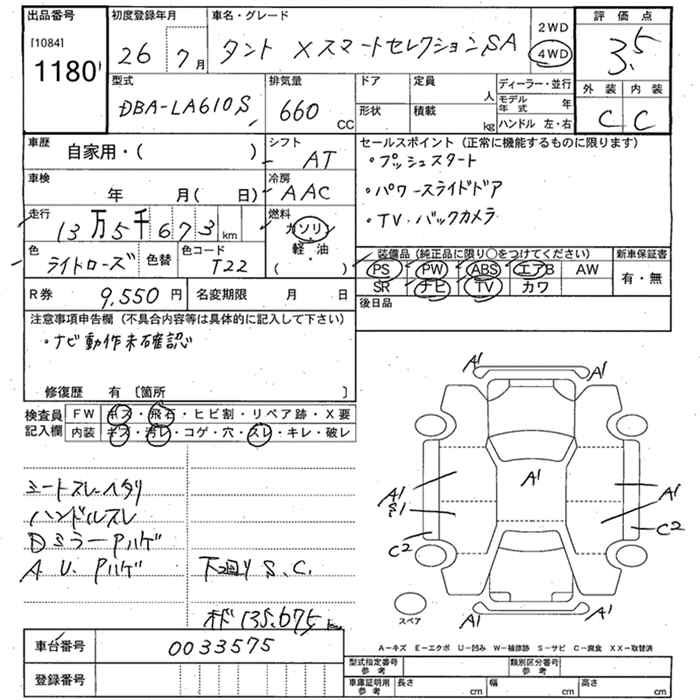 出品番号 初度登録年月 車名・グレード 2WD 評価点
[1084] 1180 26 7月 タント XスマートセレクションSA 4WD 3.5
型式 排気量 ドア 定員 人 ディーラー・並行 外装 内装
DBA-LA610S 660 CC 形状 積載 kg モデル年式 年 C C
ハンドル 左・右
車歴 自家用・( ) シフト AT セールスポイント (正常に機能するものに限ります)
・プッシュスタート
車検 年 月( 日) 冷房 AAC ・パワースライドドア
走行 13万5千673km 燃料 ガソリン ・TV・バックカメラ
軽油
・
( )
色 ライトローズ 色替 色コード T22
装備品 (純正品に限り○をつけてください) 新車保証書
PS PW ABS エアB AW 有・無
SR ナビ TV カワ
R券 9,550円 名変期限 月 日 後日品
注意事項申告欄 (不具合内容等は具体的に記入して下さい)
・ナビ動作未確認
修復歴 有 〔箇所 〕
検査員記入欄 FW キズ・飛石・ヒビ割・リペア跡・X要
内装 キズ・汚レ・コゲ・穴・スレ・キレ・破レ
シートスレヘタリ
ハンドルスレ
DミラーPハゲ
A U. Pハゲ 下廻り S.C.
オド 135.675 km
A1 A1
A1
A1 A1
S1 A1
C2 C2
A1 A1
スペア
車台番号 0033575
登録番号
A-キズ E-エクボ U-凹み W-補修跡 S-サビ C-腐食 XX-取替済
型式指定番号 参考 類別区分番号 参考
車庫証明用 参考 長さ cm 幅 cm 高さ cm